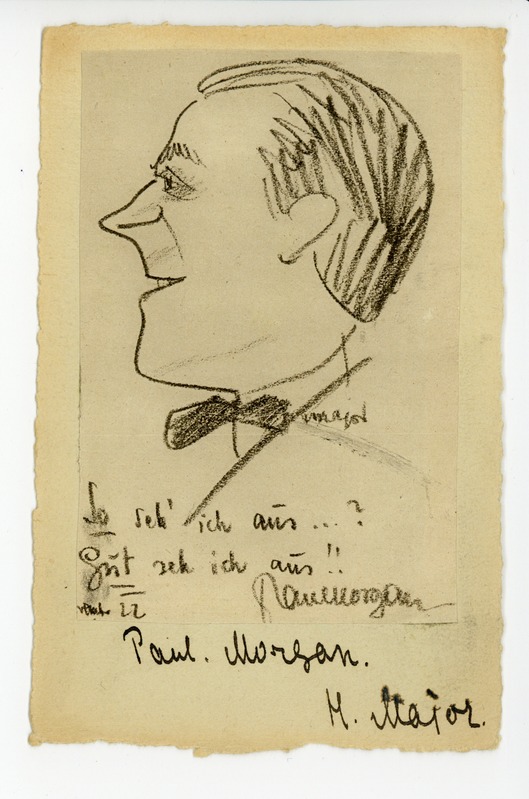 major
So seh' ich aus...?
Gut seh ich aus!!
22 Paul Morgan
Paul. Morgan.
H. Major.